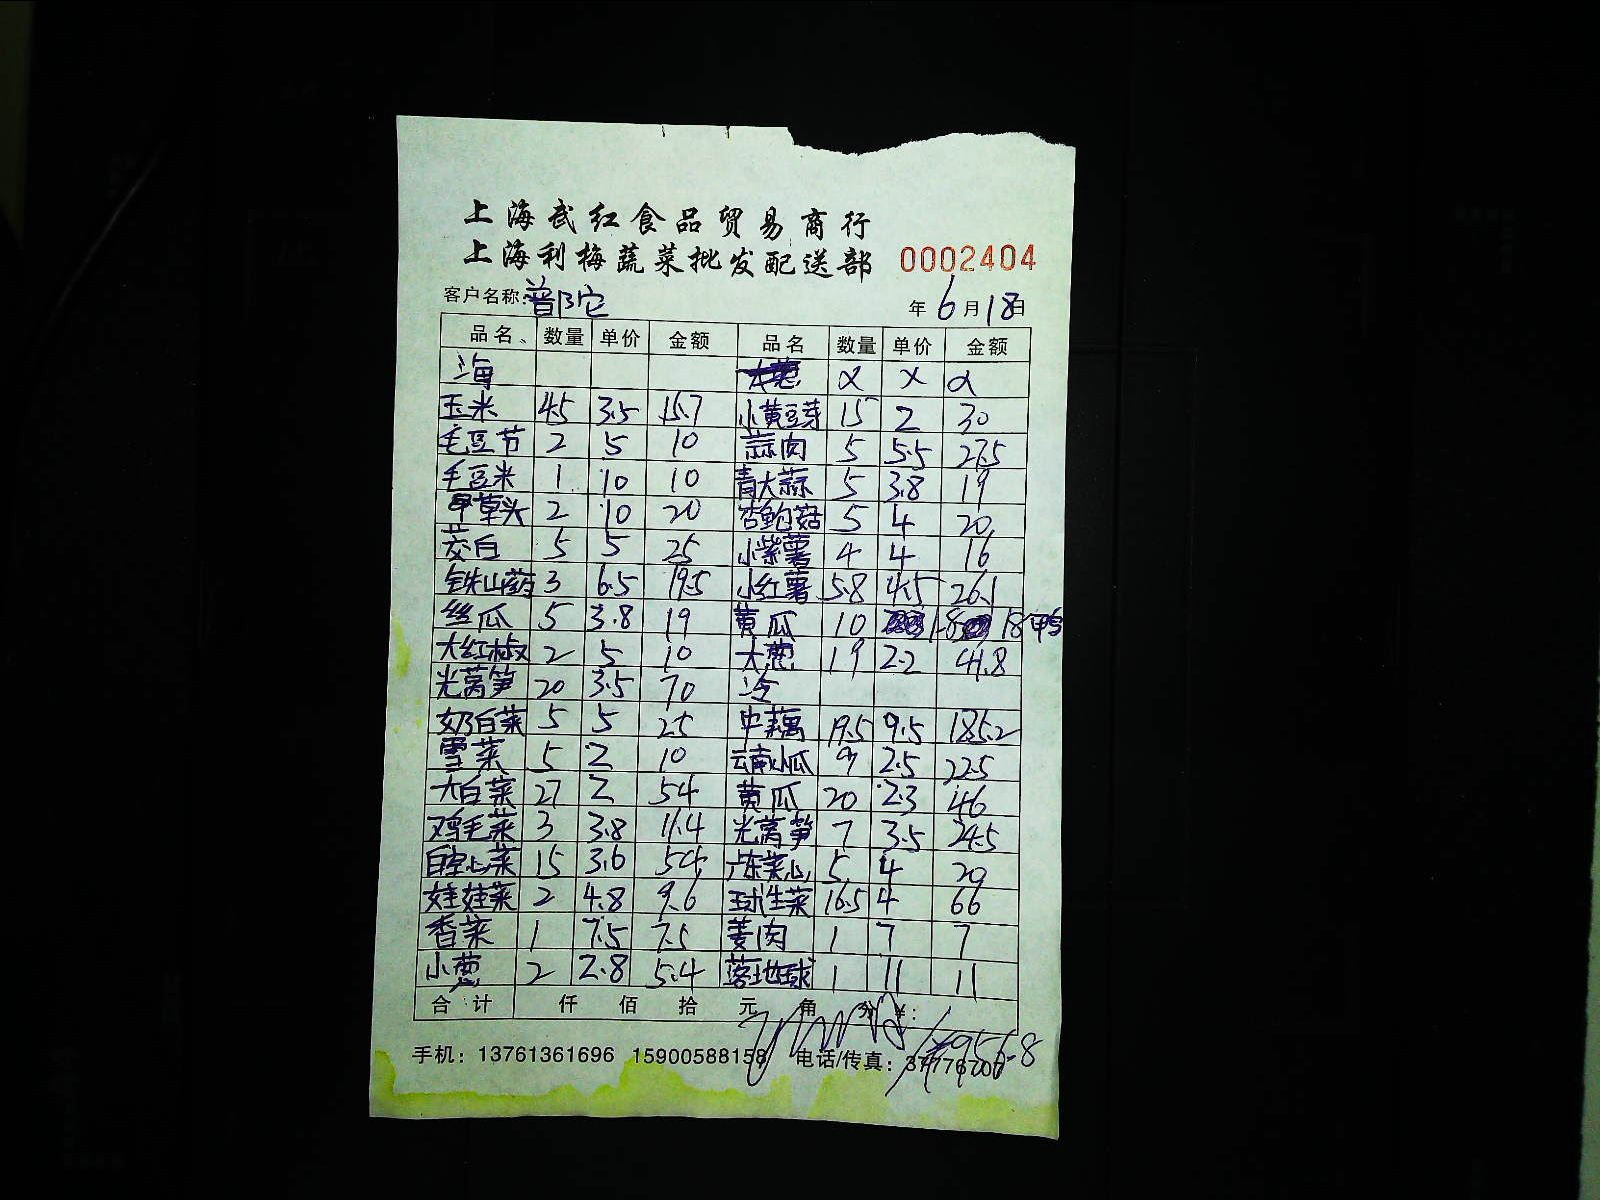 上海武红食品贸易商行
上海利梅蔬菜批发配送部 0002404
客户名称:普陀 年 6 月 18 日
品名 数量 单价 金额 品名 数量 单价 金额
海 大葱 x x x
玉米 4.5 3.5 15.7 小黄豆芽 15 2 30
毛豆节 2 5 10 蒜肉 5 5.5 27.5
毛豆米 1 10 10 青大蒜 5 3.8 19
甲草头 2 10 20 杏鲍菇 5 4 20
茭白 5 5 25 小紫薯 4 4 16
铁山药 3 6.5 19.5 小红薯 5.8 4.5 26.1
丝瓜 5 3.8 19 黄瓜 10 1.8 18 鸭
大红椒 2 5 10 大葱 19 2.2 41.8
光莴笋 20 3.5 70 冷
奶白菜 5 5 25 中藕 19.5 9.5 185.2
雪菜 5 2 10 云南小瓜 9 2.5 22.5
大白菜 27 2 54 黄瓜 20 2.3 46
鸡毛菜 3 3.8 11.4 光莴笋 7 3.5 24.5
白空心菜 15 3.6 54 广东菜心 5 4 20
娃娃菜 2 4.8 9.6 球生菜 16.5 4 66
香菜 1 7.5 7.5 姜肉 1 7 7
小葱 2 2.8 5.4 落地球 1 11 11
合计 仟 佰 拾 元 角 分 ¥:
956.8
手机：13761361696 15900588158 电话/传真：37776706